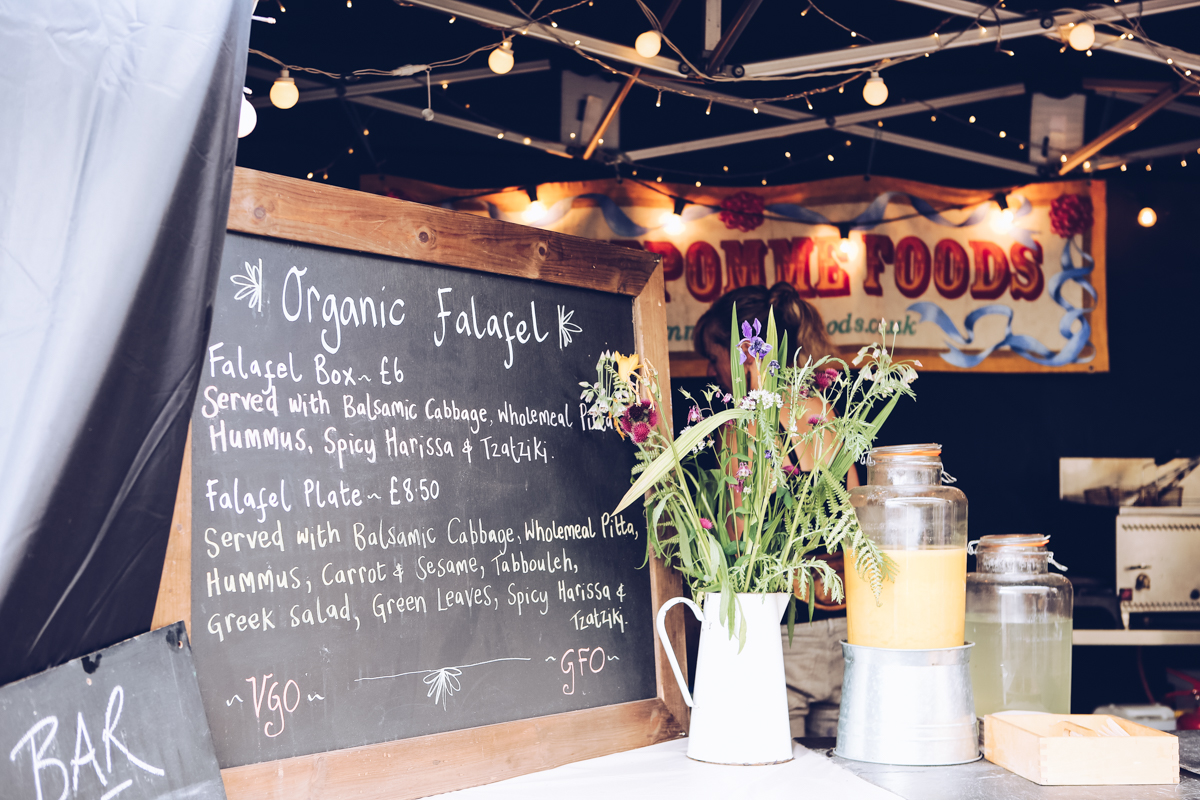 POMME FOODS
ods.co.uk
Organic Falafel
Falafel Box ~ £6
Served with Balsamic Cabbage, Wholemeal Pitta
Hummus, Spicy Harissa & Tzatziki.
Falafel Plate ~ £8.50
Served with Balsamic Cabbage, Wholemeal Pitta,
Hummus, Carrot & Sesame, Tabbouleh,
Greek salad, Green Leaves, Spicy Harissa &
Tzatziki.
~VGO~
~GFO~
BAR